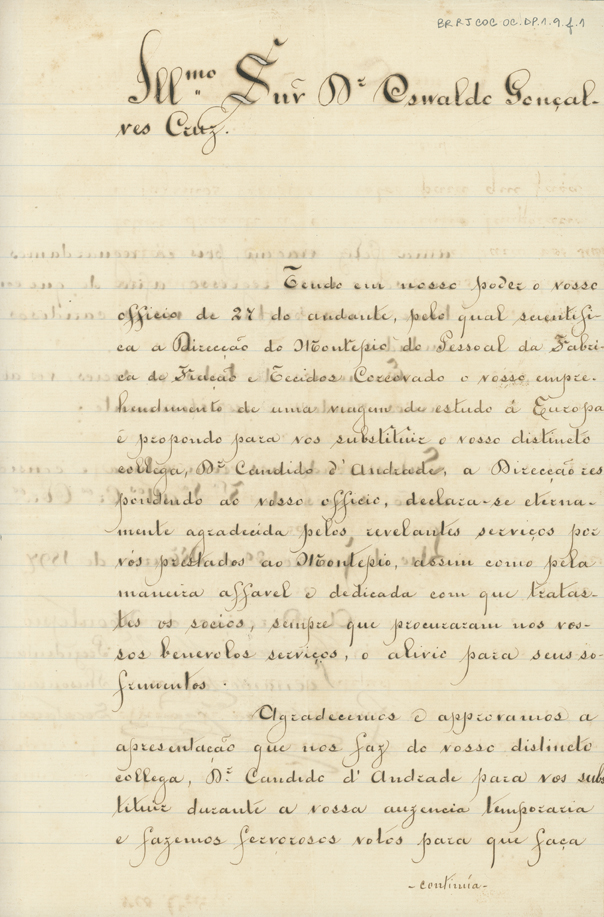 BR.RJ.COC.OC.DP.1.9.f.1
Ill.mo Snr Dr Oswaldo Gonçal-
ves Cruz.
Tendo em nosso poder o vosso
officio de 27 do andante, pelo qual scientifi-
ca a Direcção do Montepio do Pessoal da Fabri-
ca de Fiação e Tecidos Corcovado o vosso empre-
hendimento de uma viagem de estudo á Europa
é propondo para vos substituir o vosso distincto
collega, Dr. Candido d'Andrade, a Direcção res
pondendo ao vosso officio, declara-se eterna-
mente agradecida pelos revelantes serviços por
vós prestados ao Montepio, assim como pela
maneira affavel e dedicada com que tratas-
tes os socios, sempre que procuraram nos vos-
sos benevolos serviços, o alivio para seus so-
frimentos.
Agradecemos e approvamos a
apresentação que nos faz do vosso distincto
collega, Dr. Candido d'Andrade para vos subs
tituir durante a vossa auzencia temporaria
e fazemos fervorosos votos para que faça
-continúa-